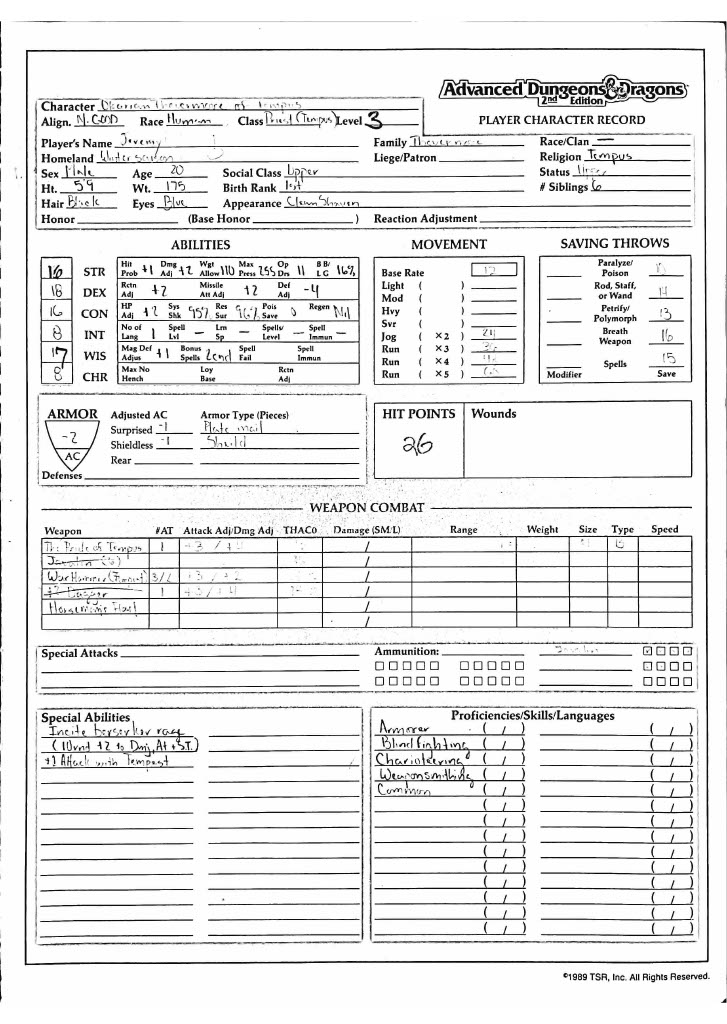 Advanced Dungeons & Dragons
2nd Edition
PLAYER CHARACTER RECORD
Character of Tempus
Align. N. GOOD Race Human Class Priest (Tempus) Level 3
Player's Name Jeremy Family Race/Clan —
Homeland Liege/Patron Religion Tempus
Sex Male Age 20 Social Class Upper Status Upper
Ht. 5'9 Wt. 175 Birth Rank 1st # Siblings 6
Hair Black Eyes Blue Appearance Clean Shaven
Honor (Base Honor ) Reaction Adjustment
ABILITIES
16 STR Hit Prob +1 Dmg Adj +2 Wgt Allow 110 Max Press 255 Op Drs 11 BB/LG 16%
18 DEX Rctn Adj +2 Missile Att Adj +2 Def Adj -4
16 CON HP Adj +2 Sys Shk 95% Res Sur 96% Pois Save 0 Regen Nil
8 INT No of Lang 1 Spell Lvl — Lrn Sp — Spells/Level — Spell Immun —
17 WIS Mag Def Adjus +1 Bonus Spells 2 Spell Fail Spell Immun
8 CHR Max No Hench Loy Base Rctn Adj
MOVEMENT
Base Rate 12
Light ( )
Mod ( )
Hvy ( )
Svr ( )
Jog ( ×2 ) 24
Run ( ×3 ) 36
Run ( ×4 )
Run ( ×5 )
SAVING THROWS
Paralyze/Poison
Rod, Staff, or Wand 14
Petrify/Polymorph 13
Breath Weapon 16
Spells 15
Modifier Save
ARMOR
-2
AC
Adjusted AC Armor Type (Pieces)
Surprised -1 Plate mail
Shieldless -1 Shield
Rear
Defenses
HIT POINTS
26
Wounds
WEAPON COMBAT
Weapon #AT Attack Adj/Dmg Adj THAC0 Damage (SM/L) Range Weight Size Type Speed
The Pride of Tempus 1 / B
Javelin (6) /
War Hammer 3/2 +3 / +2 /
+2 Dagger 1 +3 / +4 /
Horseman's Flail /
Special Attacks
Ammunition: Javelins
Special Abilities
Incite berserker rage
(10rnd +2 to Dmg, At + ST.)
+1 Attack with Tempest
Proficiencies/Skills/Languages
Armorer ( / )
Blind fighting ( / )
Charioteering ( / )
Weaponsmithing ( / )
Common ( / )
©1989 TSR, Inc. All Rights Reserved.